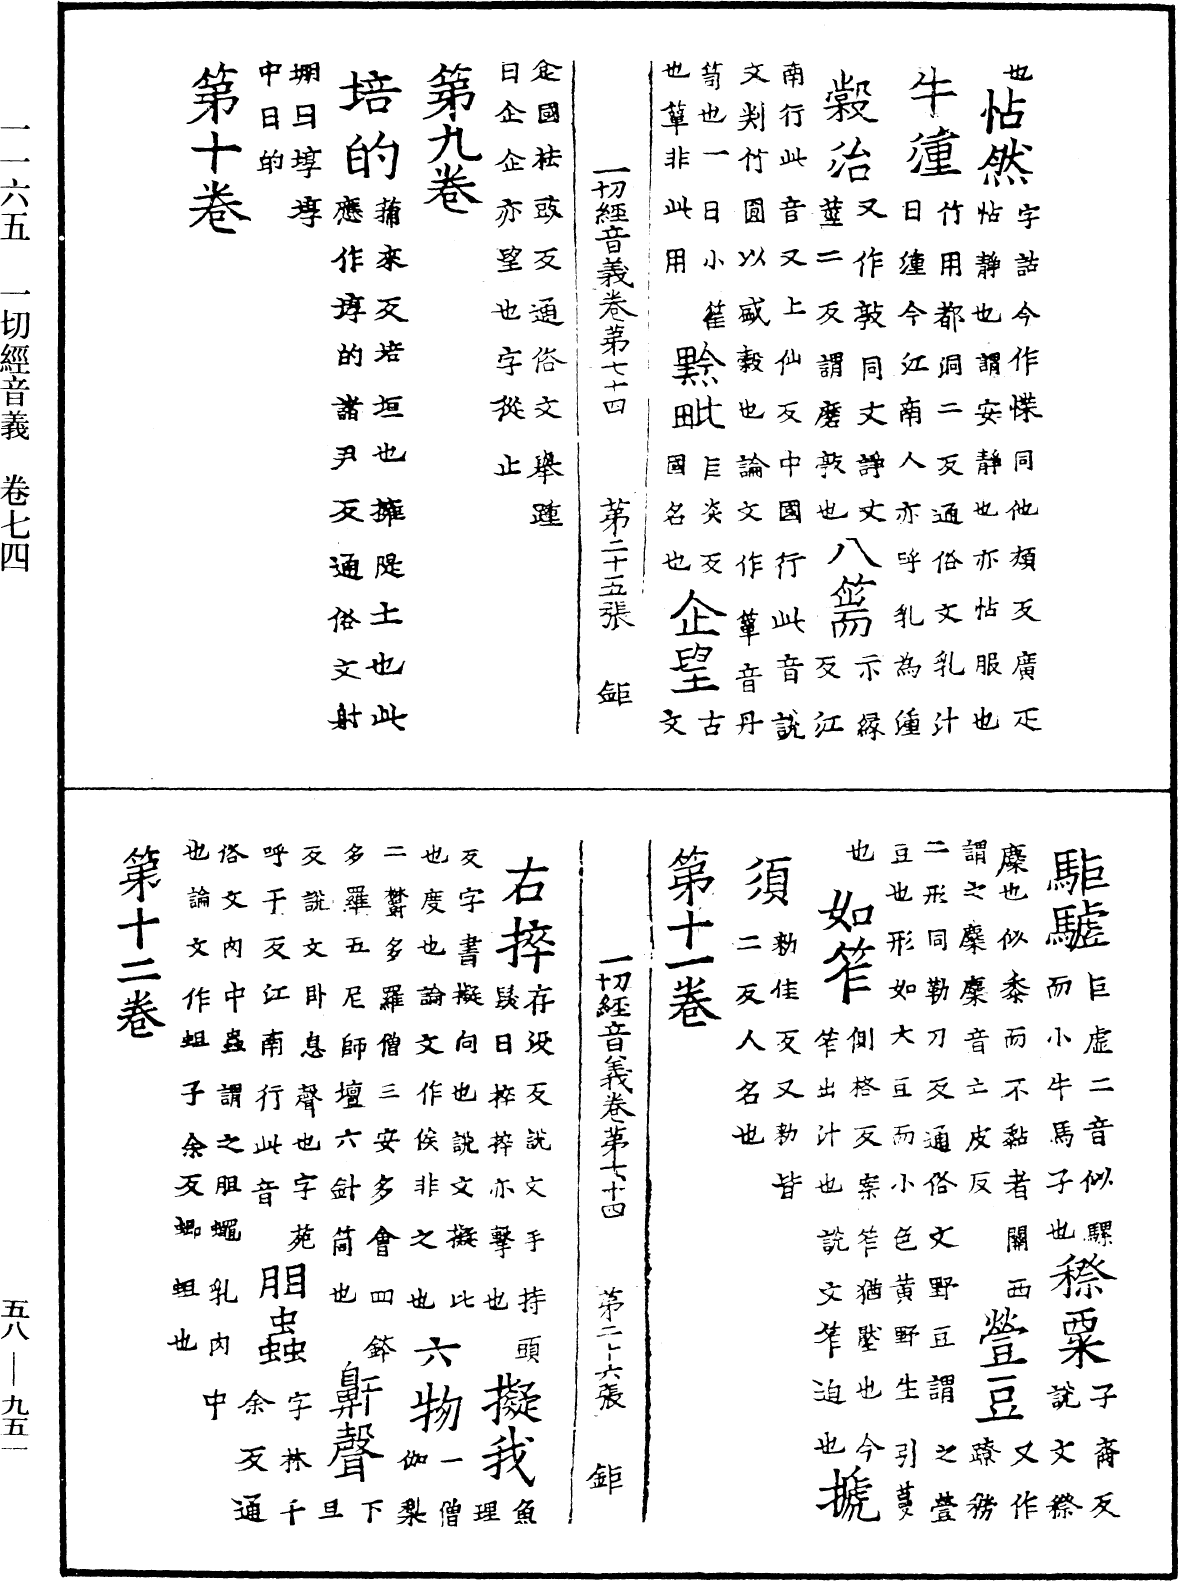 一一六五　一切經音義　卷七四
也怗然字詁今作惵同他頰反廣疋
怗靜也謂安靜也亦怗服也
牛湩竹用都洞二反通俗文乳汁
曰湩今江南人亦呼乳為湩
糓治又作敦同丈諍丈
莖二反謂磨敦也八篅示緣
反江
南行此音又上仙反中國行此音說
文判竹圓以盛穀也論文作簞音丹
笥也一曰小筐黔毗巨炎反古
也簞非此用田國名也企望文
一切經音義卷第七十四　第二十五張　鉅
企國袪豉反通俗文舉踵
曰企企亦望也字從止
第九卷
培的蒱來反培垣也擁隄土也此
應作埻的諸尹反通俗文射
堋曰埻埻
中曰的
第十卷
駏驉巨虛二音似騾
而小牛馬子也穄粟子裔反
說文穄
𪎭也似黍而不黏者關西
謂之𪎭𪎭音亡皮反䝁豆又作
𨢠務
二形同勒刀反通俗文野豆謂之䝁
豆也形如大豆而小色黃野生引蔓
也如笮側格反案笮猶壓也今
笮出汁也說文笮迫也搋
須勑佳反又勑皆
二反人名也
第十一卷
一切經音義卷第七十四　第二十六張　鉅
右捽存沒反說文手持頭
髮曰捽捽亦擊也擬我魚理
反字書擬向也說文擬比
也度也論文作俟非之也六物一僧
伽梨
二鬱多羅僧三安多會四鉢
多羅五尼師壇六針筒也鼾聲下旦
反說文卧息聲也字苑
呼干反江南行此音胆蟲字林千
余反通
俗文肉中蟲謂之胆蠅乳肉中
也論文作蛆子余反蝍蛆也
第十二卷
五八—九五一